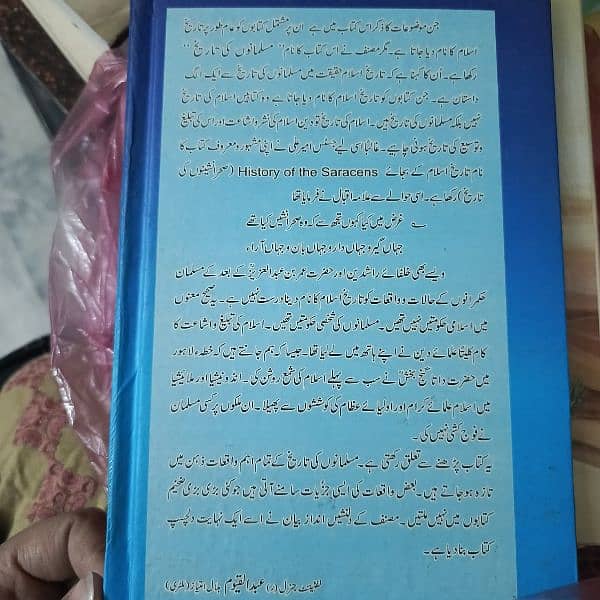 جن موضوعات کا ذکر اس کتاب میں ہے ان پر مشتمل کتابوں کو عام طور پر تاریخ
اسلام کا نام دیا جاتا ہے۔ مگر مصنف نے اس کتاب کا نام ”مسلمانوں کی تاریخ“
رکھا ہے۔ اُن کا کہنا ہے کہ تاریخ اسلام حقیقت میں مسلمانوں کی تاریخ سے ایک الگ
داستان ہے۔ جن کتابوں کو تاریخ اسلام کا نام دیا جاتا ہے وہ کتابیں اسلام کی تاریخ
نہیں بلکہ مسلمانوں کی تاریخ ہیں۔ اسلام کی تاریخ تو دین اسلام کی نشر و اشاعت اور اس کی تبلیغ
و توسیع کی تاریخ ہونی چاہیے۔ غالباً اسی لیے جسٹس امیر علی نے اپنی مشہور و معروف کتاب کا
نام تاریخ اسلام کے بجائے History of the Saracens (صحرا نشینوں کی
تاریخ) رکھا ہے۔ اسی حوالے سے علامہ اقبال نے فرمایا تھا
؎ غرض میں کیا کہوں تجھ سے کہ وہ صحرا نشیں کیا تھے
جہاں گیر و جہاں دار و جہاں بان و جہاں آراء
ویسے بھی خلفائے راشدین اور حضرت عمر بن عبدالعزیزؒ کے بعد کے مسلمان
حکمرانوں کے حالات و واقعات کو تاریخ اسلام کا نام دینا درست نہیں ہے۔ یہ صحیح معنوں
میں اسلامی حکومتیں نہیں تھیں۔ مسلمانوں کی شخصی حکومتیں تھیں۔ اسلام کی تبلیغ و اشاعت کا
کام کلیتاً علمائے دین نے اپنے ہاتھ میں لے لیا تھا۔ جیسا کہ ہم جانتے ہیں کہ خطۂ لاہور
میں حضرت داتا گنج بخشؒ نے سب سے پہلے اسلام کی شمع روشن کی۔ انڈونیشیا اور ملائیشیا
میں اسلام علمائے کرام اور اولیائے عظام کی کوششوں سے پھیلا۔ ان ملکوں پر کسی مسلمان
نے فوج کشی نہیں کی۔
یہ کتاب پڑھنے سے تعلق رکھتی ہے۔ مسلمانوں کی تاریخ کے تمام اہم واقعات ذہن میں
تازہ ہو جاتے ہیں۔ بعض واقعات کی ایسی جزئیات سامنے آتی ہیں جو کئی بڑی بڑی ضخیم
کتابوں میں نہیں ملتیں۔ مصنف کے دلنشیں انداز بیان نے اسے ایک نہایت دلچسپ
کتاب بنا دیا ہے۔
لیفٹیننٹ جنرل (ر) عبدالقیوم ہلال امتیاز (ملٹری)